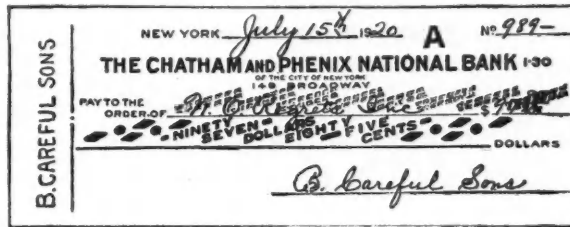 NEW YORK July 15th 1920 A No. 989-
THE CHATHAM AND PHENIX NATIONAL BANK 1-30
OF THE CITY OF NEW YORK
149 BROADWAY
PAY TO THE
ORDER OF $
NINETY SEVEN DOLLARS EIGHTY FIVE CENTS
DOLLARS
B. Careful Sons
B. CAREFUL SONS